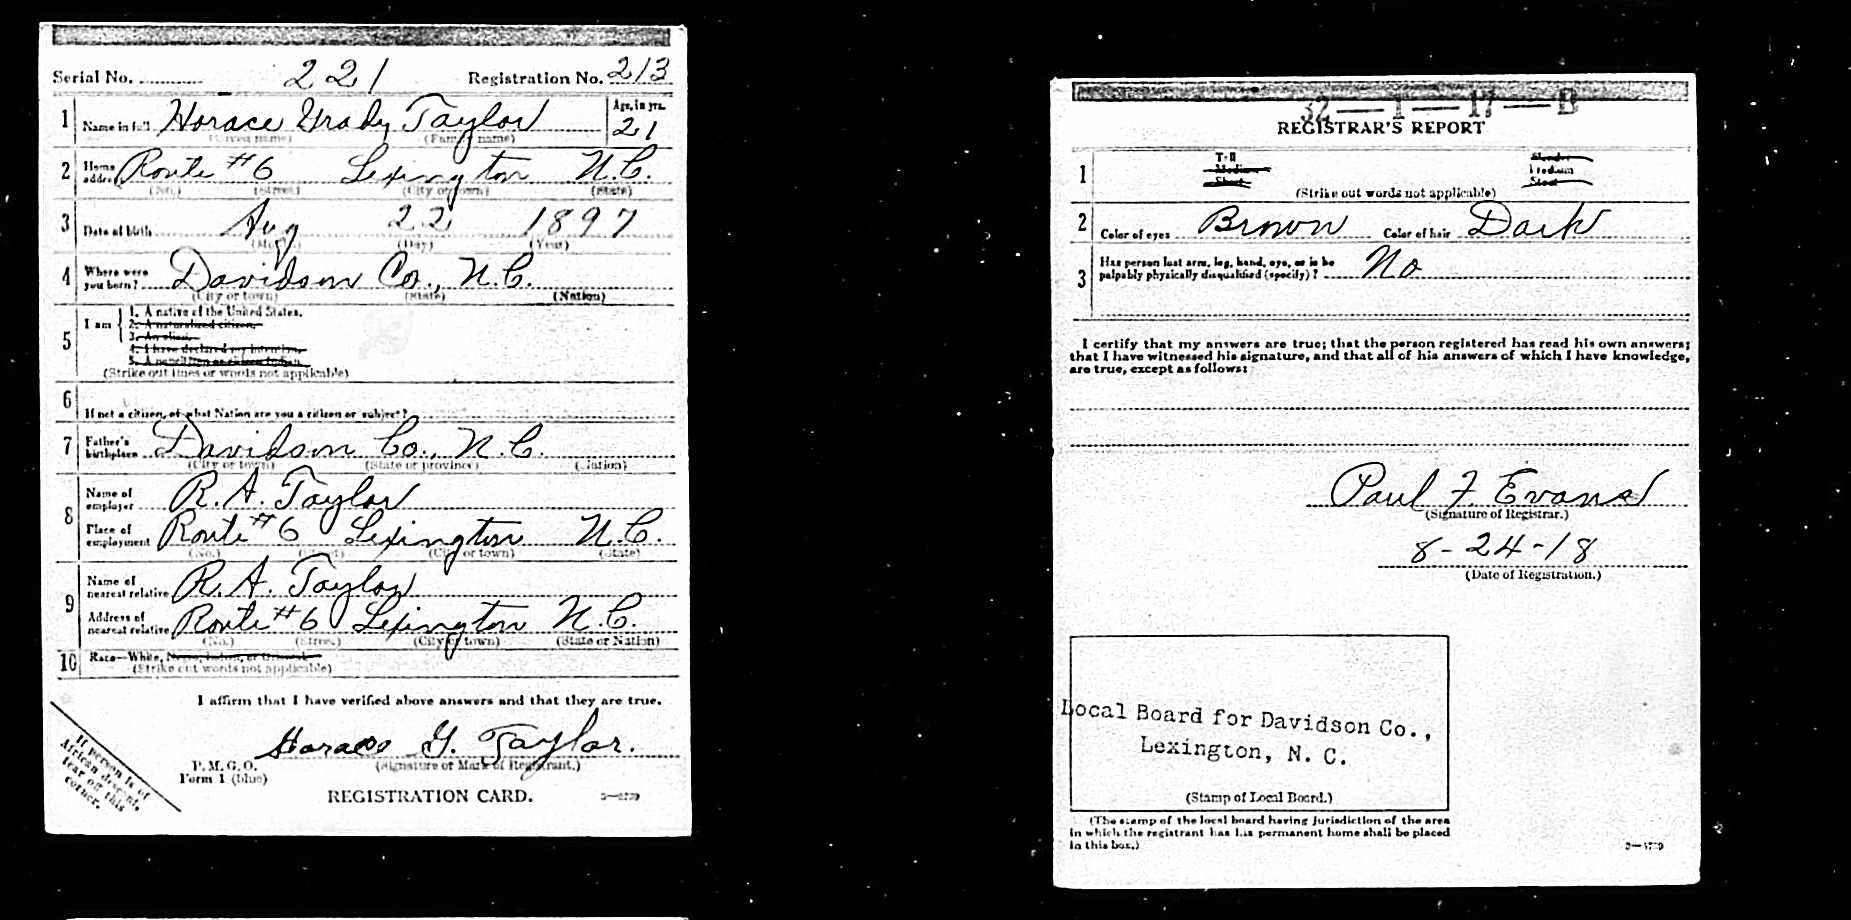 Serial No. 221 Registration No. 213
1 Name in full Horace Grady Taylor Age, in yrs. 21
(Given name) (Family name)
2 Home address Route #6 Lexington N.C.
(No.) (Street) (City or town) (State)
3 Date of birth Aug 22 1897
(Month) (Day) (Year)
4 Where were you born? Davidson Co., N.C.
(City or town) (State) (Nation)
5 I am
1. A native of the United States.
2. A naturalized citizen.
3. An alien.
4. I have declared my intention.
5. A noncitizen or citizen Indian.
(Strike out lines or words not applicable)
6 If not a citizen, of what Nation are you a citizen or subject?
7 Father's birthplace Davidson Co., N.C.
(City or town) (State or province) (Nation)
8 Name of employer R. A. Taylor
Place of employment Route #6 Lexington N.C.
(No.) (Street) (City or town) (State)
9 Name of nearest relative R. A. Taylor
Address of nearest relative Route #6 Lexington N.C.
(No.) (Street) (City or town) (State or Nation)
10 Race—White, Negro, Indian, or Oriental
(Strike out words not applicable)
I affirm that I have verified above answers and that they are true.
Horace G. Taylor.
P. M. G. O.
Form 1 (blue)
(Signature or Mark of Registrant.)
REGISTRATION CARD.
If person is of
African descent,
tear off this
corner.
32—1—17—B
REGISTRAR'S REPORT
1 Tall Slender
Medium Medium
Short Stout
(Strike out words not applicable)
2 Color of eyes Brown Color of hair Dark
3 Has person lost arm, leg, hand, eye, or is he
palpably physically disqualified (specify)? No
I certify that my answers are true; that the person registered has read his own answers;
that I have witnessed his signature, and that all of his answers of which I have knowledge,
are true, except as follows:
Paul F. Evans
(Signature of Registrar.)
8-24-18
(Date of Registration.)
Local Board for Davidson Co.,
Lexington, N. C.
(Stamp of Local Board.)
(The stamp of the local board having jurisdiction of the area
in which the registrant has his permanent home shall be placed
in this box.)